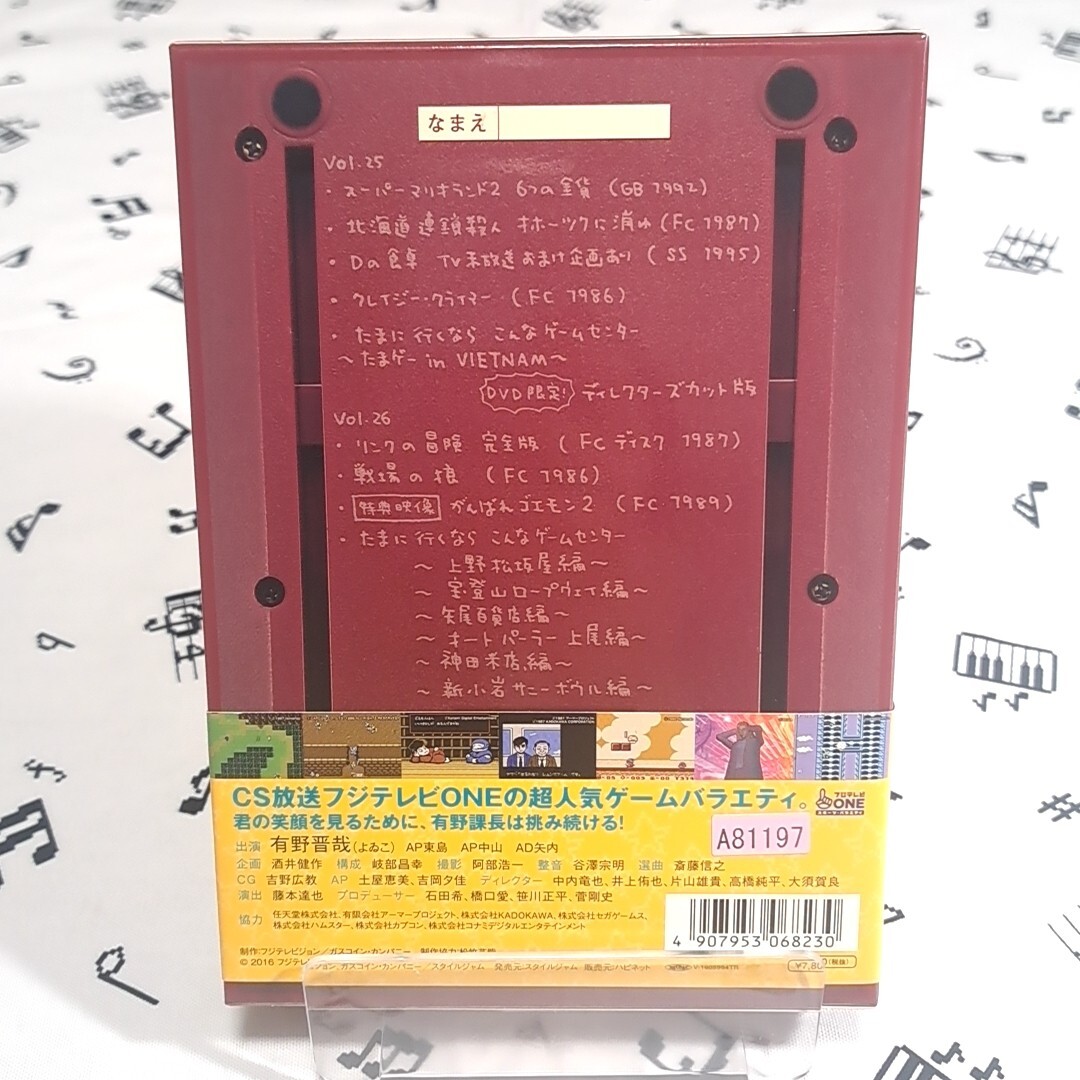 なまえ
Vol.25
・スーパーマリオランド2 6つの金貨 (GB 1992)
・北海道連鎖殺人 オホーツクに消ゆ (FC 1987)
・Dの食卓 TV未放送おまけ企画あり (SS 1995)
・クレイジー・クライマー (FC 1986)
・たまに行くなら こんなゲームセンター
～たまゲー in VIETNAM～
DVD限定! ディレクターズカット版
Vol.26
・リンクの冒険 完全版 (FCディスク 1987)
・戦場の狼 (FC 1986)
・特典映像 がんばれゴエモン2 (FC 1989)
・たまに行くなら こんなゲームセンター
～上野松坂屋編～
～宝登山ロープウェイ編～
～矢尾百貨店編～
～オートパーラー上尾編～
～神田米店編～
～新小岩サニーボウル編～
CS放送フジテレビONEの超人気ゲームバラエティ。
フジテレビ ONE
君の笑顔を見るために、有野課長は挑み続ける!
A81197
出演 有野晋哉(よゐこ) AP東島 AP中山 AD矢内
企画 酒井健作 構成 岐部昌幸 撮影 阿部浩一 整音 谷澤宗明 選曲 斎藤信之
CG 吉野広教 AP 土屋恵美、吉岡夕佳 ディレクター 中内竜也、井上侑也、片山雄貴、高橋純平、大須賀良
演出 藤本達也 プロデューサー 石田希、橋口愛、笹川正平、菅剛史
協力 任天堂株式会社、有限会社アーマープロジェクト、株式会社KADOKAWA、株式会社セガゲームス、
株式会社ハムスター、株式会社カプコン、株式会社コナミデジタルエンタテインメント
4 907953 068230
制作:フジテレビジョン/ガスコイン・カンパニー 制作協力:
© 2016 フジテレビジョン、ガスコイン・カンパニー/スタイルジャム 発売元:スタイルジャム 販売元:ハピネット
¥7,80 (税抜)